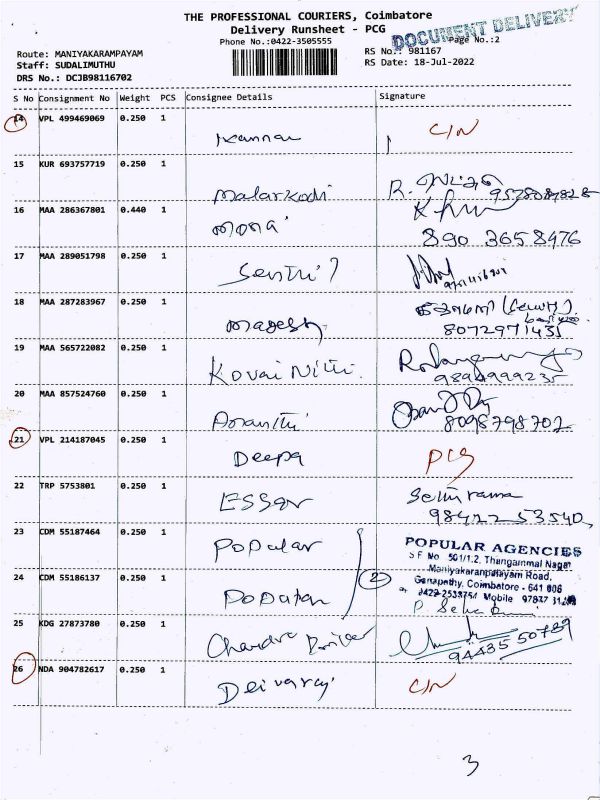 THE PROFESSIONAL COURIERS, Coimbatore
Delivery Runsheet - PCG
DOCUMENT DELIVERY
Phone No.:0422-3505555
Page No.:2
Route: MANIYAKARAMPAYAM
RS No.: 981167
Staff: SUDALIMUTHU
RS Date: 18-Jul-2022
DRS No.: DCJB98116702
S No Consignment No Weight PCS Consignee Details Signature
14 VPL 499469069 0.250 1 Kannan C/N
15 KUR 693757719 0.250 1
Malarkodi R.
16 MAA 286367801 0.440 1
Mona
890 3658476
17 MAA 289051798 0.250 1
Senthil
18 MAA 287283967 0.250 1
Magesh
8072971435
19 MAA 565722082 0.250 1
Kovai Nitti
20 MAA 857524760 0.250 1
Ananthi 8098798702
21 VPL 214187045 0.250 1
Deepa
22 TRP 5753801 0.250 1
ESSar
98422 53540
23 CDM 55187464 0.250 1
Popular
POPULAR AGENCIES
S F No 501/1.2, Thangammal Nagar
Maniyakaranpalayam Road,
24 CDM 55186137 0.250 1 2
Ganapathy, Coimbatore - 641 006
Popular
0422-2533754 Mobile
25 KDG 27873780 0.250 1
Chandra
94435 50789
26 NDA 904782617 0.250 1
Deivaraj C/N
3